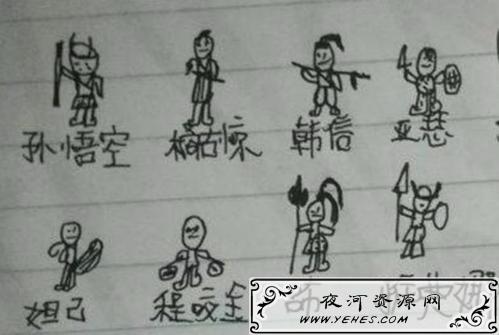 孙悟空 橘右京 韩信 亚瑟
妲己 程咬金
夜河资源网
WWW.YEHES.COM